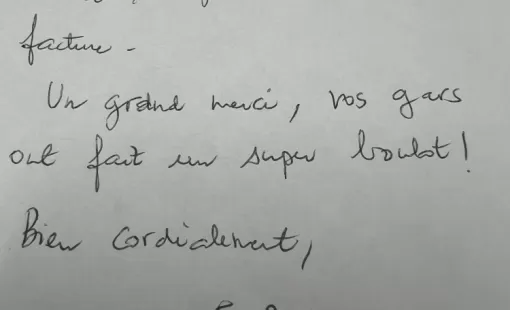 facture.
Un grand merci, vos gars
ont fait un super boulot !
Bien cordialement,